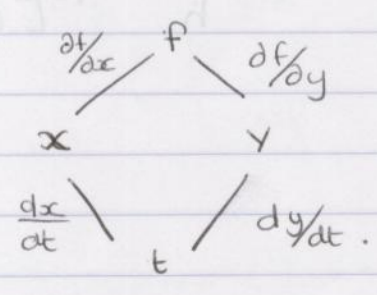 ∂f/∂x f ∂f/∂y
x y
dx/dt dy/dt .
t